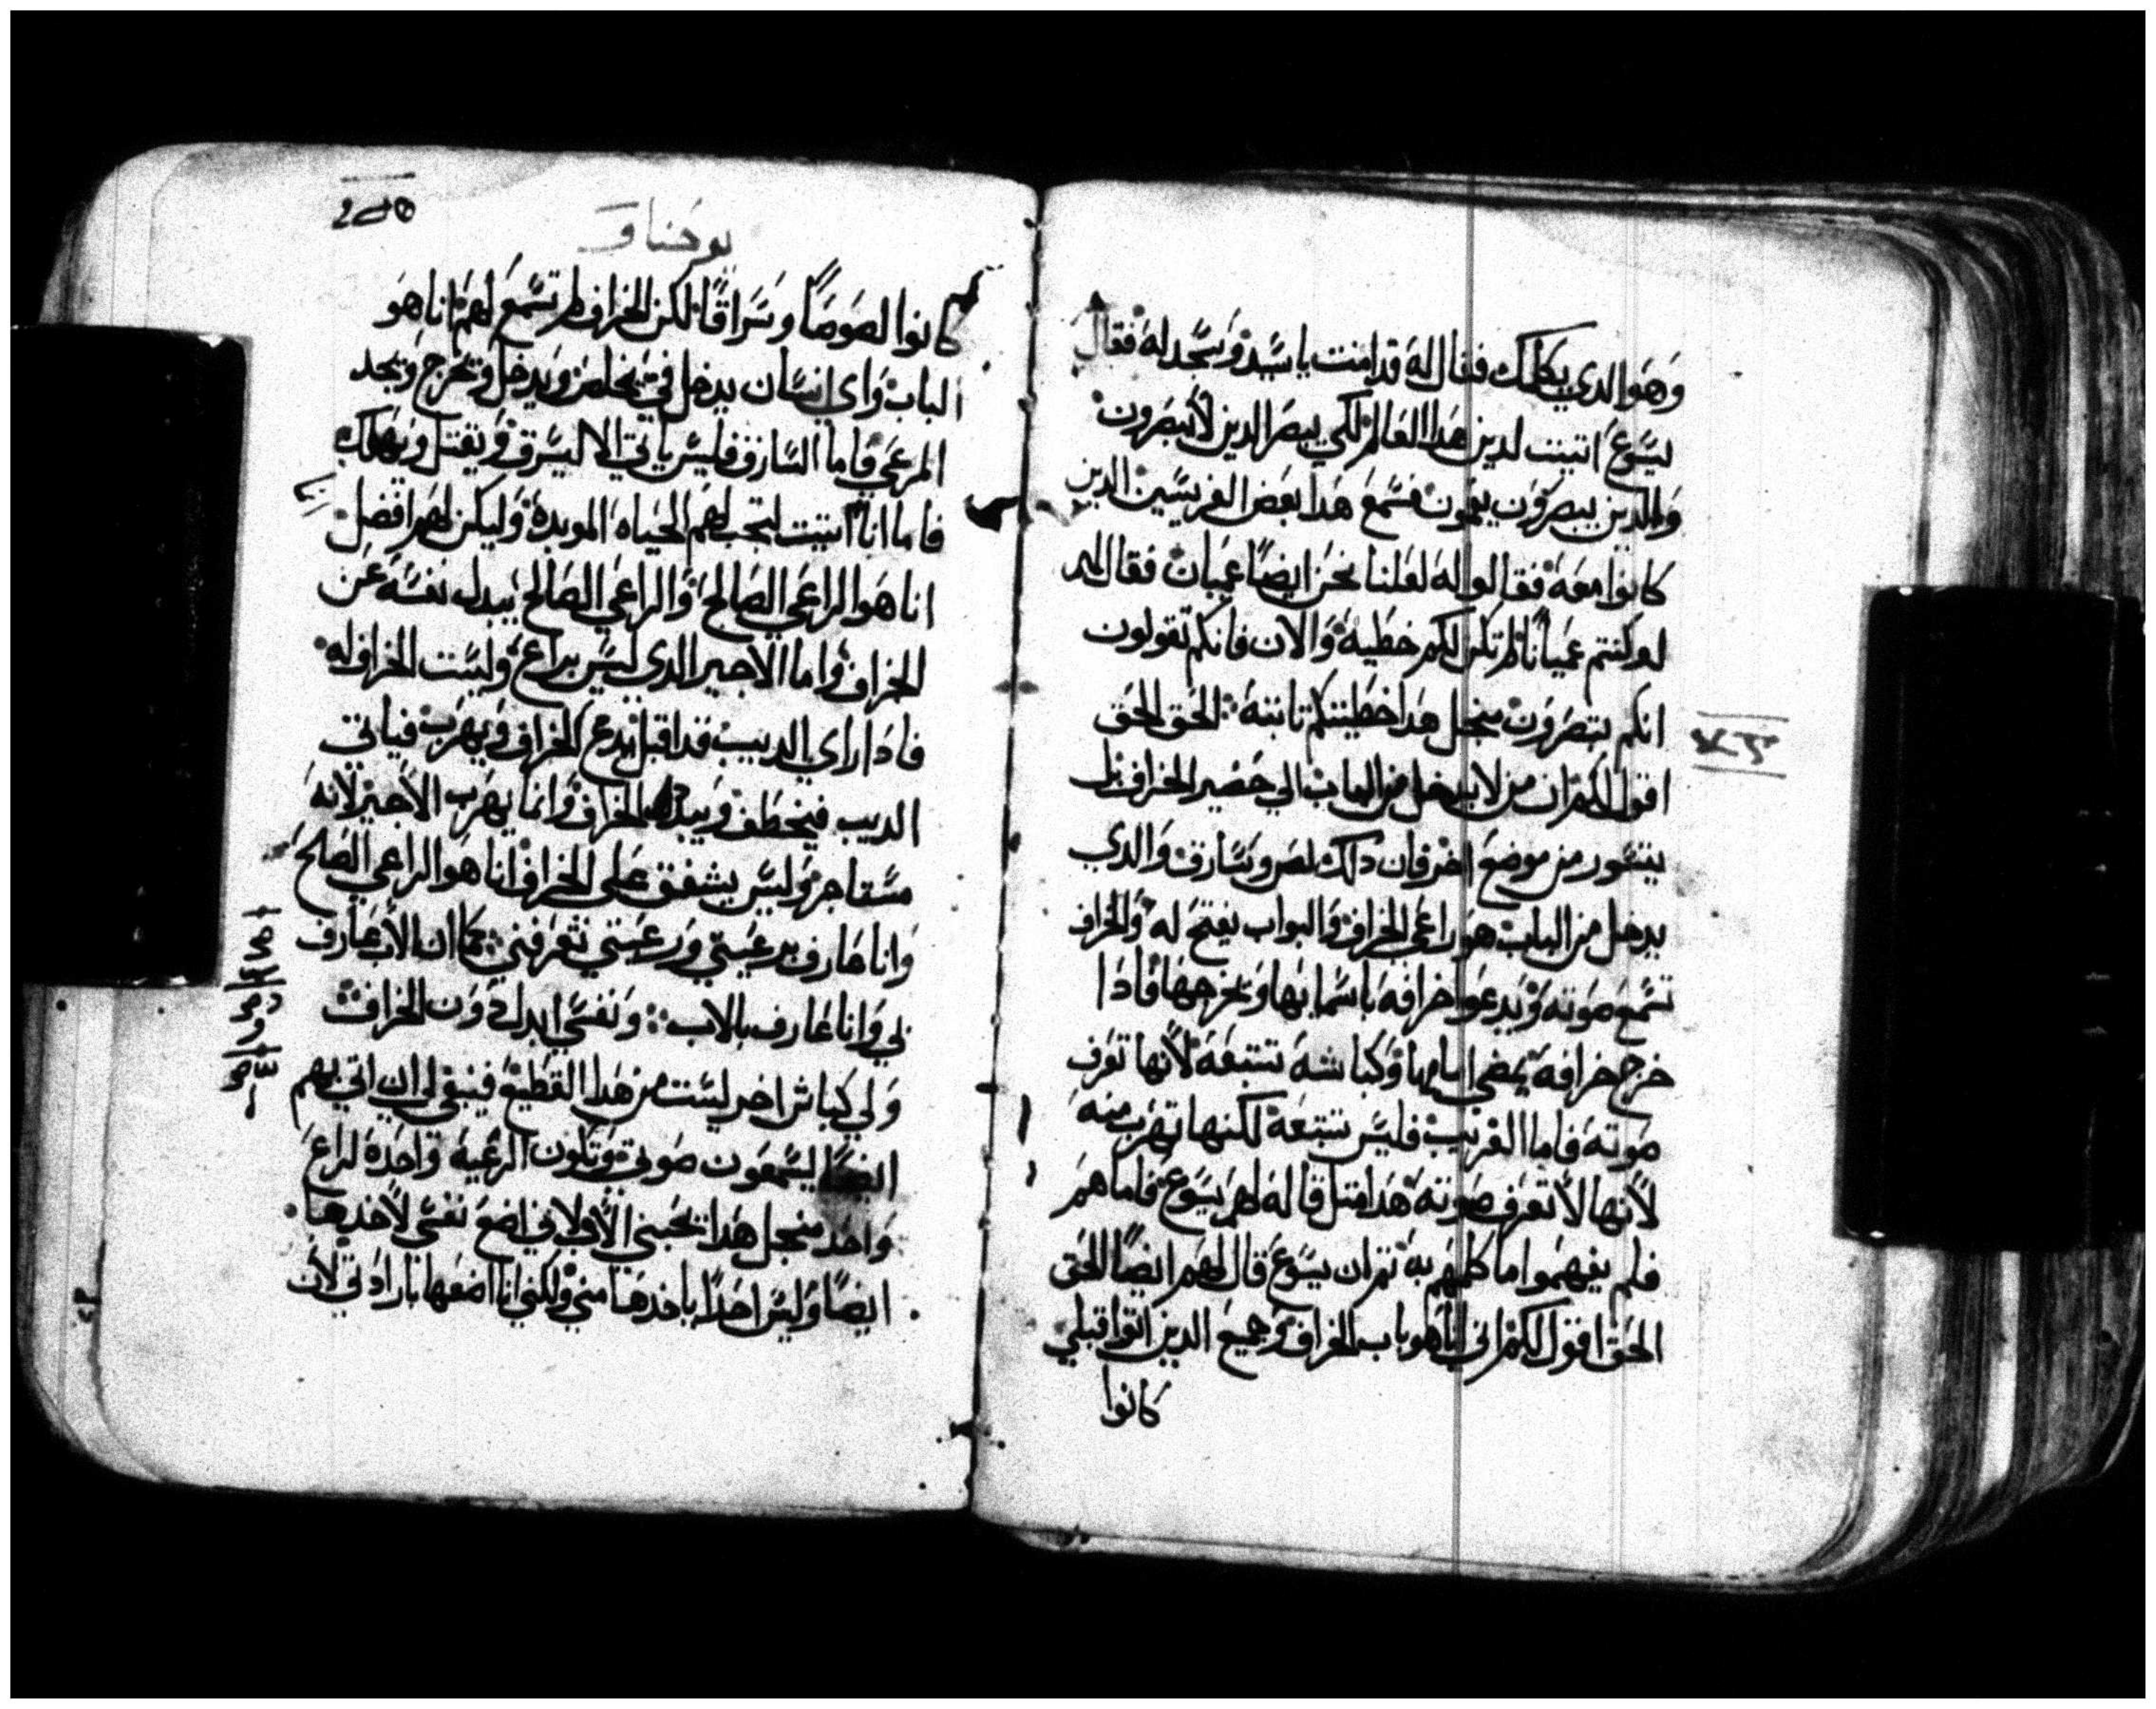 وهو الدي يكلمك فقال له قد امنت ياسيد وسجد له فقال
يسوع اتيت لدين هدا العالم لكي يبصر الدين لا يبصرون
والدين يبصرون يعمون فسمع هدا بعض الفريسين الدين
كانوا معه فقالوا له لعلنا نحن ايضًا عميان فقال لهم
لو كنتم عميانًا لم تكن لكم خطية والان فانكم تقولون
انكم تبصرون منجل هدا خطيتكم تابته الحق الحق
اقول لكم ان من لا يدخل من الباب الي حضير الخراف بل
يتسور من موضع اخر فان دلك لص وسارق والدي
يدخل من الباب هو راعي الخراف والبواب يفتح له والخراف
تسمع صوته ويدعوا خرافه باسمايها ويخرجها فادا
خرج خرافه يمضي امامها وكباشه تتبعه لانها تعرف
صوته فاما الغريب فليس تتبعه لكنها تهرب منه
لانها لا تعرف صوته هدا متل قاله لهم يسوع فاما هم
فلم يفهموا ما كلمهم به تم ان يسوع قال لهم ايضًا الحق
الحق اقول لكم اني انا هو باب الخراف وجميع الدين اتوا قبلي
كانوا
يوحنا
كانوا لصوصًا وسراقًا لكن الخراف لم تسمع لهم انا هو
الباب واي انسان يدخل في يخلص ويدخل ويخرج ويجد
المرعي فاما السارق فليس ياتي الا ليسرق ويقتل ويهلك
فاما انا اتيت لتجب لهم الحياه الموبدة وليكن لهم افضل
انا هو الراعي الصالح والراعي الصالح يبدل نفسه عن
الخراف واما الاجير الدي ليس براع وليست الخراف له
فادا راي الديب قد اقبل يدع الخراف ويهرب فياتي
الديب فيخطف ويبدد الخراف وانما يهرب الاجير لانه
مستاجر وليس يشفق علي الخراف انا هو الراعي الصلح
وانا عارف برعيتي ورعيتي تعرفني كما ان الاب عارف
بي وانا عارف بالاب ونفسي ابدل دون الخراف
ولي كباش اخر ليست من هدا القطيع فينبغي لي ان اتي بهم
ايضًا ليسمعون صوتي وتكون الرعية واحدة لراع
واحد منجل هدا يحبني الاب لاني اضع نفسي لاخدها
ايضًا وليس احدًا ياخدها مني ولكني انا اضعها بارادتي لان